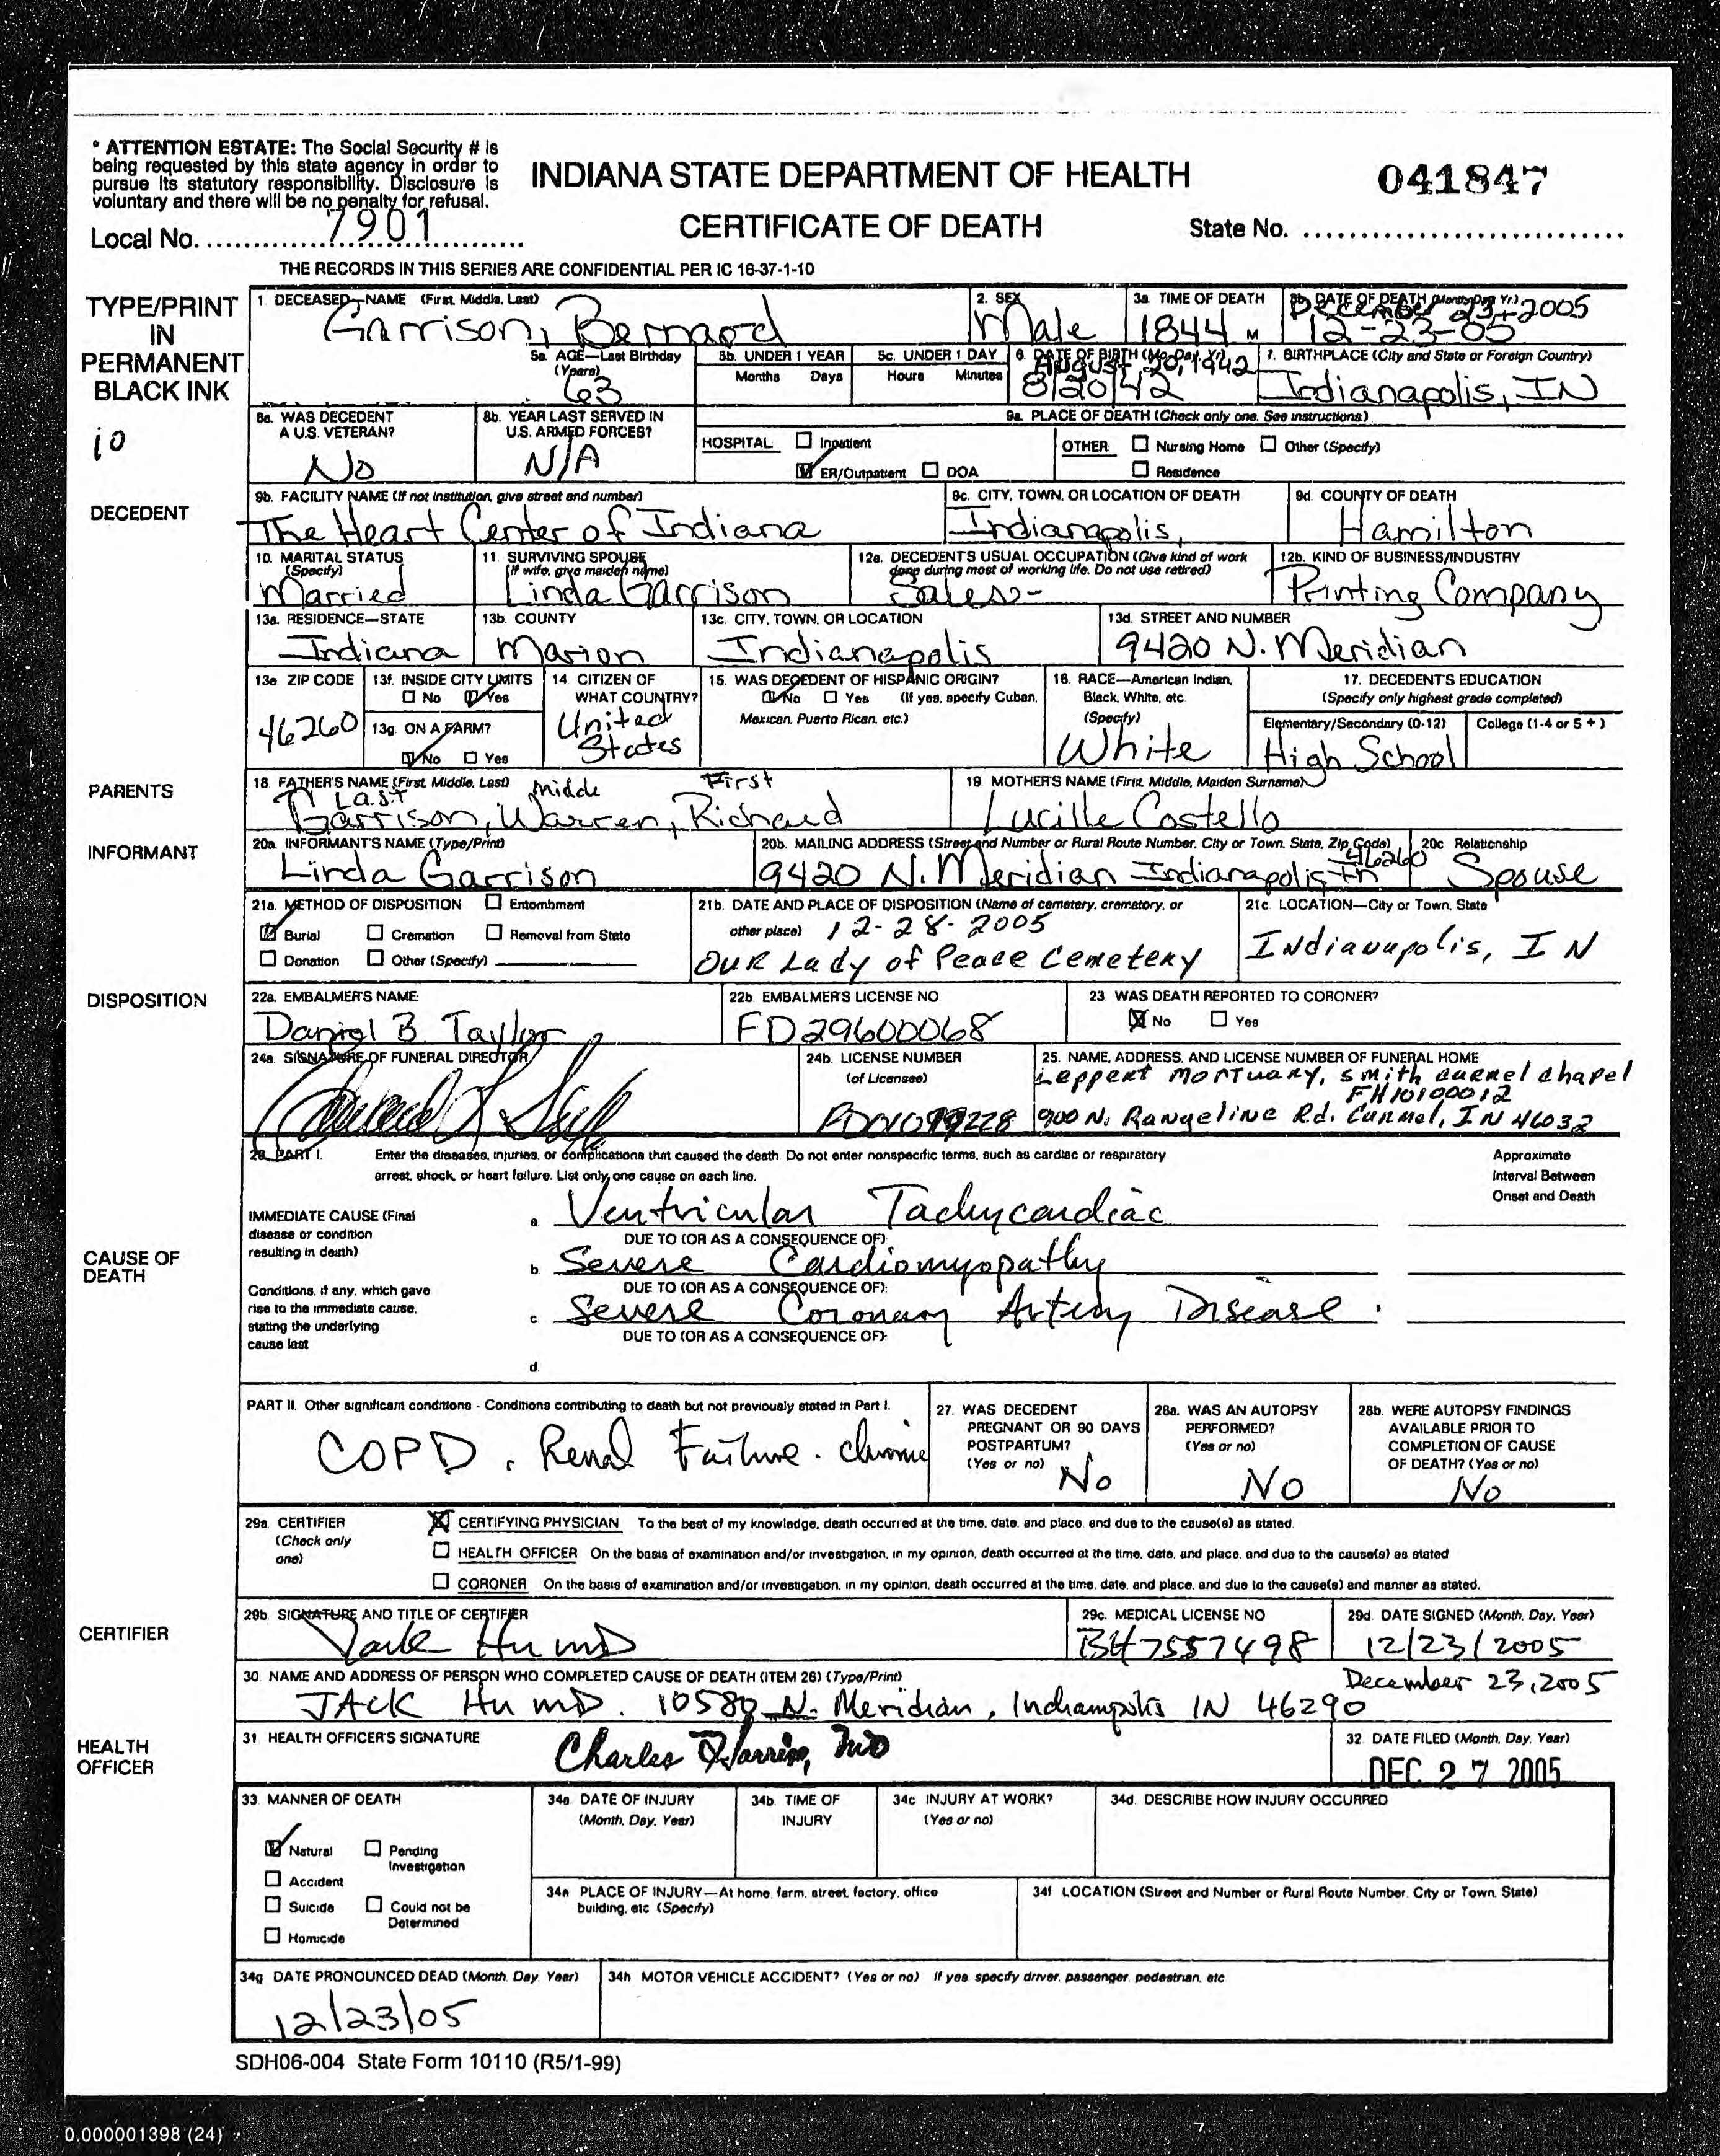 * ATTENTION ESTATE: The Social Security # is
being requested by this state agency in order to
pursue its statutory responsibility. Disclosure is
voluntary and there will be no penalty for refusal.
INDIANA STATE DEPARTMENT OF HEALTH
041847
Local No. 7901
CERTIFICATE OF DEATH
State No.
THE RECORDS IN THIS SERIES ARE CONFIDENTIAL PER IC 16-37-1-10
TYPE/PRINT
IN
PERMANENT
BLACK INK
10
1. DECEASED—NAME (First, Middle, Last)
Garrison, Bernard
2. SEX
Male
3a. TIME OF DEATH
1844 M
3b. DATE OF DEATH (Month, Day, Yr.)
December 23, 2005
12-23-05
5a. AGE—Last Birthday
(Years)
63
5b. UNDER 1 YEAR
Months Days
5c. UNDER 1 DAY
Hours Minutes
6. DATE OF BIRTH (Mo. Day, Yr)
August 20, 1942
8/20/42
7. BIRTHPLACE (City and State or Foreign Country)
Indianapolis, IN
8a. WAS DECEDENT
A U.S. VETERAN?
No
8b. YEAR LAST SERVED IN
U.S. ARMED FORCES?
N/A
9a. PLACE OF DEATH (Check only one. See instructions)
HOSPITAL Inpatient
ER/Outpatient DOA
OTHER: Nursing Home Other (Specify)
Residence
DECEDENT
9b. FACILITY NAME (If not institution, give street and number)
The Heart Center of Indiana
9c. CITY, TOWN, OR LOCATION OF DEATH
Indianapolis,
9d. COUNTY OF DEATH
Hamilton
10. MARITAL STATUS
(Specify)
Married
11. SURVIVING SPOUSE
(If wife, give maiden name)
Linda Garrison
12a. DECEDENT'S USUAL OCCUPATION (Give kind of work
done during most of working life. Do not use retired)
Sales-
12b. KIND OF BUSINESS/INDUSTRY
Printing Company
13a. RESIDENCE—STATE
Indiana
13b. COUNTY
Marion
13c. CITY, TOWN, OR LOCATION
Indianapolis
13d. STREET AND NUMBER
9420 N. Meridian
13e ZIP CODE
46260
13f. INSIDE CITY LIMITS
No Yes
13g. ON A FARM?
No Yes
14. CITIZEN OF
WHAT COUNTRY?
United
States
15. WAS DECEDENT OF HISPANIC ORIGIN?
No Yes (If yes, specify Cuban,
Mexican, Puerto Rican, etc.)
16. RACE—American Indian,
Black, White, etc
(Specify)
White
17. DECEDENT'S EDUCATION
(Specify only highest grade completed)
Elementary/Secondary (0-12) College (1-4 or 5 +)
High School
PARENTS
18. FATHER'S NAME (First, Middle, Last)
Last Middle First
Garrison, Warren, Richard
19 MOTHER'S NAME (First, Middle, Maiden Surname)
Lucille Costello
INFORMANT
20a. INFORMANT'S NAME (Type/Print)
Linda Garrison
20b. MAILING ADDRESS (Street and Number or Rural Route Number, City or Town, State, Zip Code)
9420 N. Meridian Indianapolis In 46260
20c Relationship
Spouse
21a. METHOD OF DISPOSITION Entombment
Burial Cremation Removal from State
Donation Other (Specify)
21b. DATE AND PLACE OF DISPOSITION (Name of cemetery, crematory, or
other place) 12-28-2005
OUR Lady of Peace Cemetery
21c. LOCATION—City or Town, State
Indianapolis, IN
DISPOSITION
22a. EMBALMER'S NAME:
Daniel B. Taylor
22b. EMBALMER'S LICENSE NO
FD29600068
23 WAS DEATH REPORTED TO CORONER?
No Yes
24a. SIGNATURE OF FUNERAL DIRECTOR
24b. LICENSE NUMBER
(of Licensee)
25. NAME, ADDRESS, AND LICENSE NUMBER OF FUNERAL HOME
Leppert Mortuary, Smith Carmel Chapel
FH10100012
900 N. Rangeline Rd. Carmel, IN 46032
26. PART I. Enter the diseases, injuries, or complications that caused the death. Do not enter nonspecific terms, such as cardiac or respiratory
arrest, shock, or heart failure. List only one cause on each line.
Approximate
Interval Between
Onset and Death
CAUSE OF
DEATH
IMMEDIATE CAUSE (Final
disease or condition
resulting in death)
a. Ventricular Tachycardiac
DUE TO (OR AS A CONSEQUENCE OF):
b. Severe Cardiomyopathy
Conditions, if any, which gave
rise to the immediate cause,
stating the underlying
cause last
DUE TO (OR AS A CONSEQUENCE OF):
c. Severe Coronary Artery Disease.
DUE TO (OR AS A CONSEQUENCE OF):
d.
PART II. Other significant conditions - Conditions contributing to death but not previously stated in Part I.
COPD, Renal Failure. chronic
27. WAS DECEDENT
PREGNANT OR 90 DAYS
POSTPARTUM?
(Yes or no)
No
28a. WAS AN AUTOPSY
PERFORMED?
(Yes or no)
No
28b. WERE AUTOPSY FINDINGS
AVAILABLE PRIOR TO
COMPLETION OF CAUSE
OF DEATH? (Yes or no)
No
29a. CERTIFIER
(Check only
one)
CERTIFYING PHYSICIAN To the best of my knowledge, death occurred at the time, date, and place, and due to the cause(s) as stated.
HEALTH OFFICER On the basis of examination and/or investigation, in my opinion, death occurred at the time, date, and place, and due to the cause(s) as stated
CORONER On the basis of examination and/or investigation, in my opinion, death occurred at the time, date, and place, and due to the cause(s) and manner as stated.
CERTIFIER
29b. SIGNATURE AND TITLE OF CERTIFIER
Jack Hu MD
29c. MEDICAL LICENSE NO
BH7557498
29d. DATE SIGNED (Month, Day, Year)
12/23/2005
December 23, 2005
30. NAME AND ADDRESS OF PERSON WHO COMPLETED CAUSE OF DEATH (ITEM 26) (Type/Print)
JACK Hu MD. 10580 N. Meridian, Indianapolis IN 46290
HEALTH
OFFICER
31. HEALTH OFFICER'S SIGNATURE
Charles Harris, MD
32. DATE FILED (Month, Day, Year)
DEC 27 2005
33. MANNER OF DEATH
Natural Pending
Investigation
Accident
Suicide Could not be
Determined
Homicide
34a. DATE OF INJURY
(Month, Day, Year)
34b. TIME OF
INJURY
34c INJURY AT WORK?
(Yes or no)
34d. DESCRIBE HOW INJURY OCCURRED
34e PLACE OF INJURY—At home, farm, street, factory, office
building, etc (Specify)
34f LOCATION (Street and Number or Rural Route Number, City or Town, State)
34g DATE PRONOUNCED DEAD (Month, Day, Year)
12/23/05
34h MOTOR VEHICLE ACCIDENT? (Yes or no) If yes, specify driver, passenger, pedestrian, etc
SDH06-004 State Form 10110 (R5/1-99)
0.000001398 (24)
7